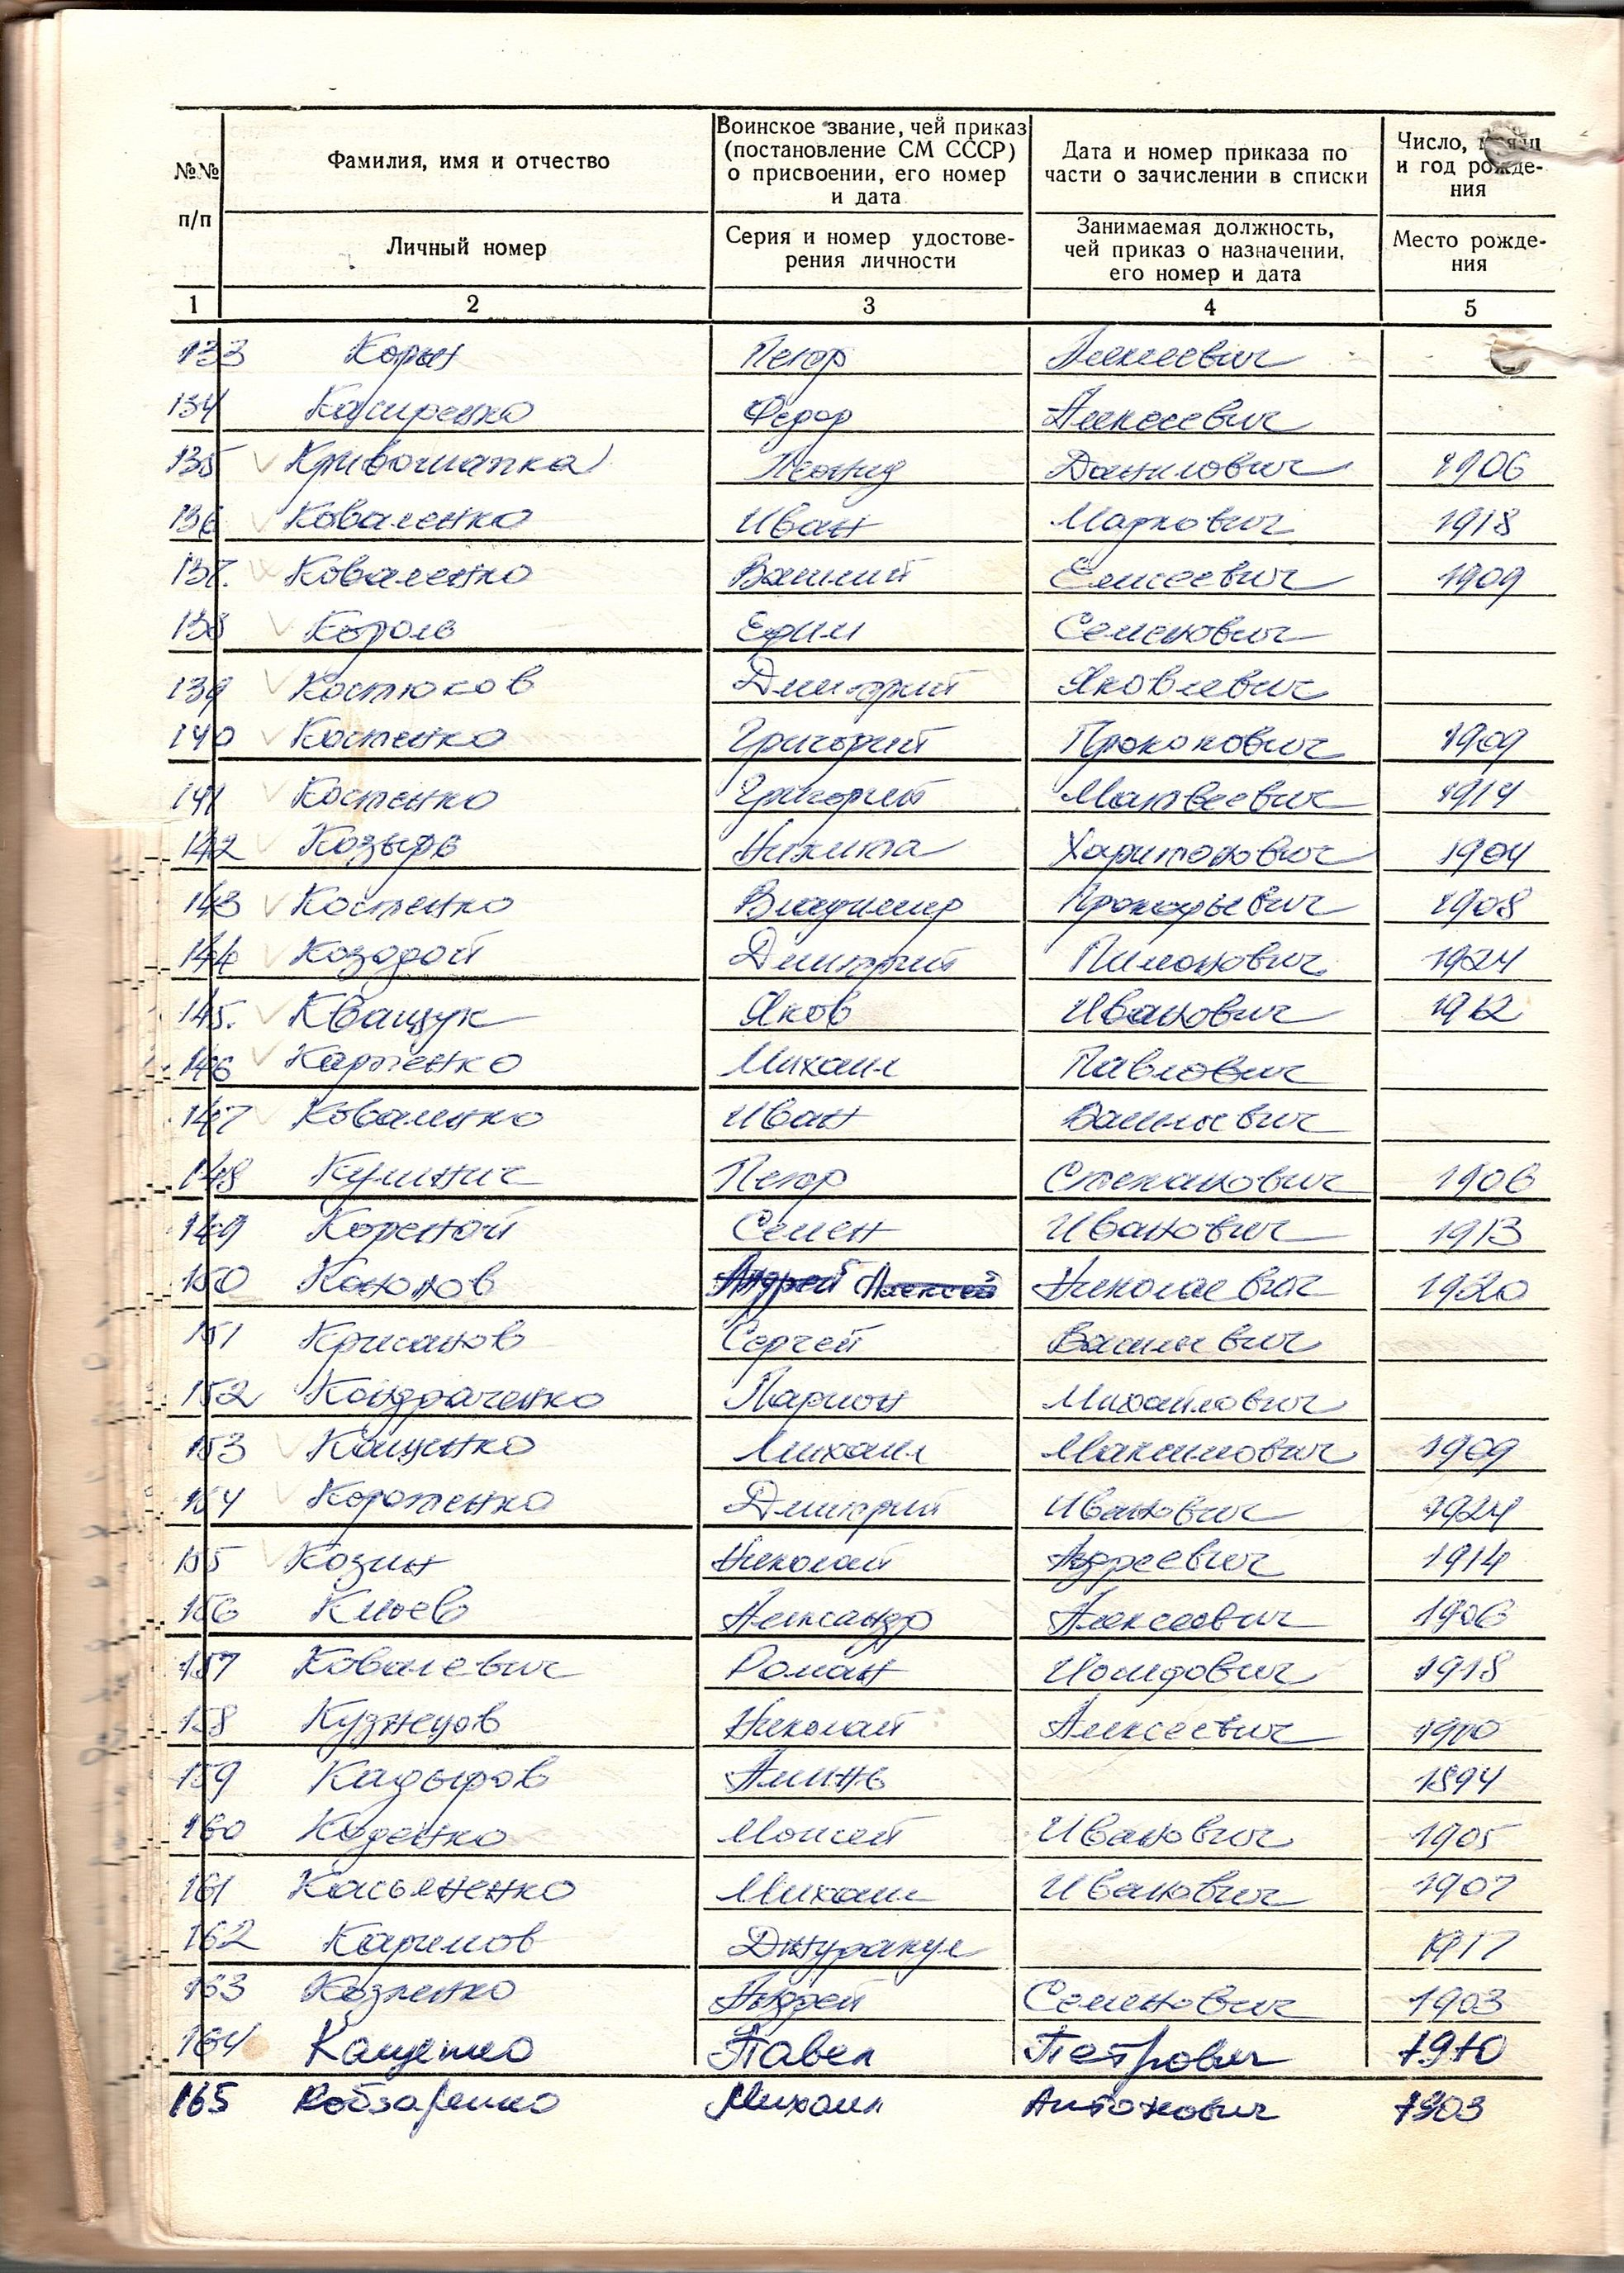 №№ п/п
Фамилия, имя и отчество
Личный номер
Воинское звание, чей приказ
(постановление СМ СССР)
о присвоении, его номер
и дата
Серия и номер удостове-
рения личности
Дата и номер приказа по
части о зачислении в списки
Занимаемая должность,
чей приказ о назначении,
его номер и дата
Число,
и год рожде-
ния
Место рожде-
ния
1 2 3 4 5
133 Петр Алексеевич
134 Федор Алексеевич
135 Кривошапка Леонид Данилович 1906
136 Коваленко Иван Маркович 1918
137. Коваленко Василий Елисеевич 1909
138 Король Ефим Семенович
139 Костюков Дмитрий Яковлевич
140 Костенко Григорий Прокопович 1909
141 Костенко Григорий Матвеевич 1914
142 Козырь Никита Харитонович 1904
143 Костенко Владимир Прокофьевич 1908
144 Козодой Дмитрий Пимонович 1924
145. Кващук Яков Иванович 1912
146 Карпенко Михаил Павлович
147 Коваленко Иван Васильевич
148 Петр Степанович 1906
149 Кореной Семен Иванович 1913
150 Андрей Алексей Николаевич 1920
151 Крисанов Сергей Василевич
152 Кондраченко Ларион Михайлович
153 Кащенко Михаил Максимович 1909
154 Дмитрий Иванович 1924
155 Козин Николай Адреевич 1914
156 Александр Алексеевич 1906
157 Ковалевич Роман Иосифович 1918
158 Кузнецов Николай Алексеевич 1910
159 Кадыров Аминь 1894
160 Моисей Иванович 1905
161 Касьяненко Михаил Иванович 1907
162 Каримов Джуракул 1917
163 Андрей Семенович 1903
164 Кащенко Павел Петрович 1910
165 Кобзаренко Михаил Антонович 1903